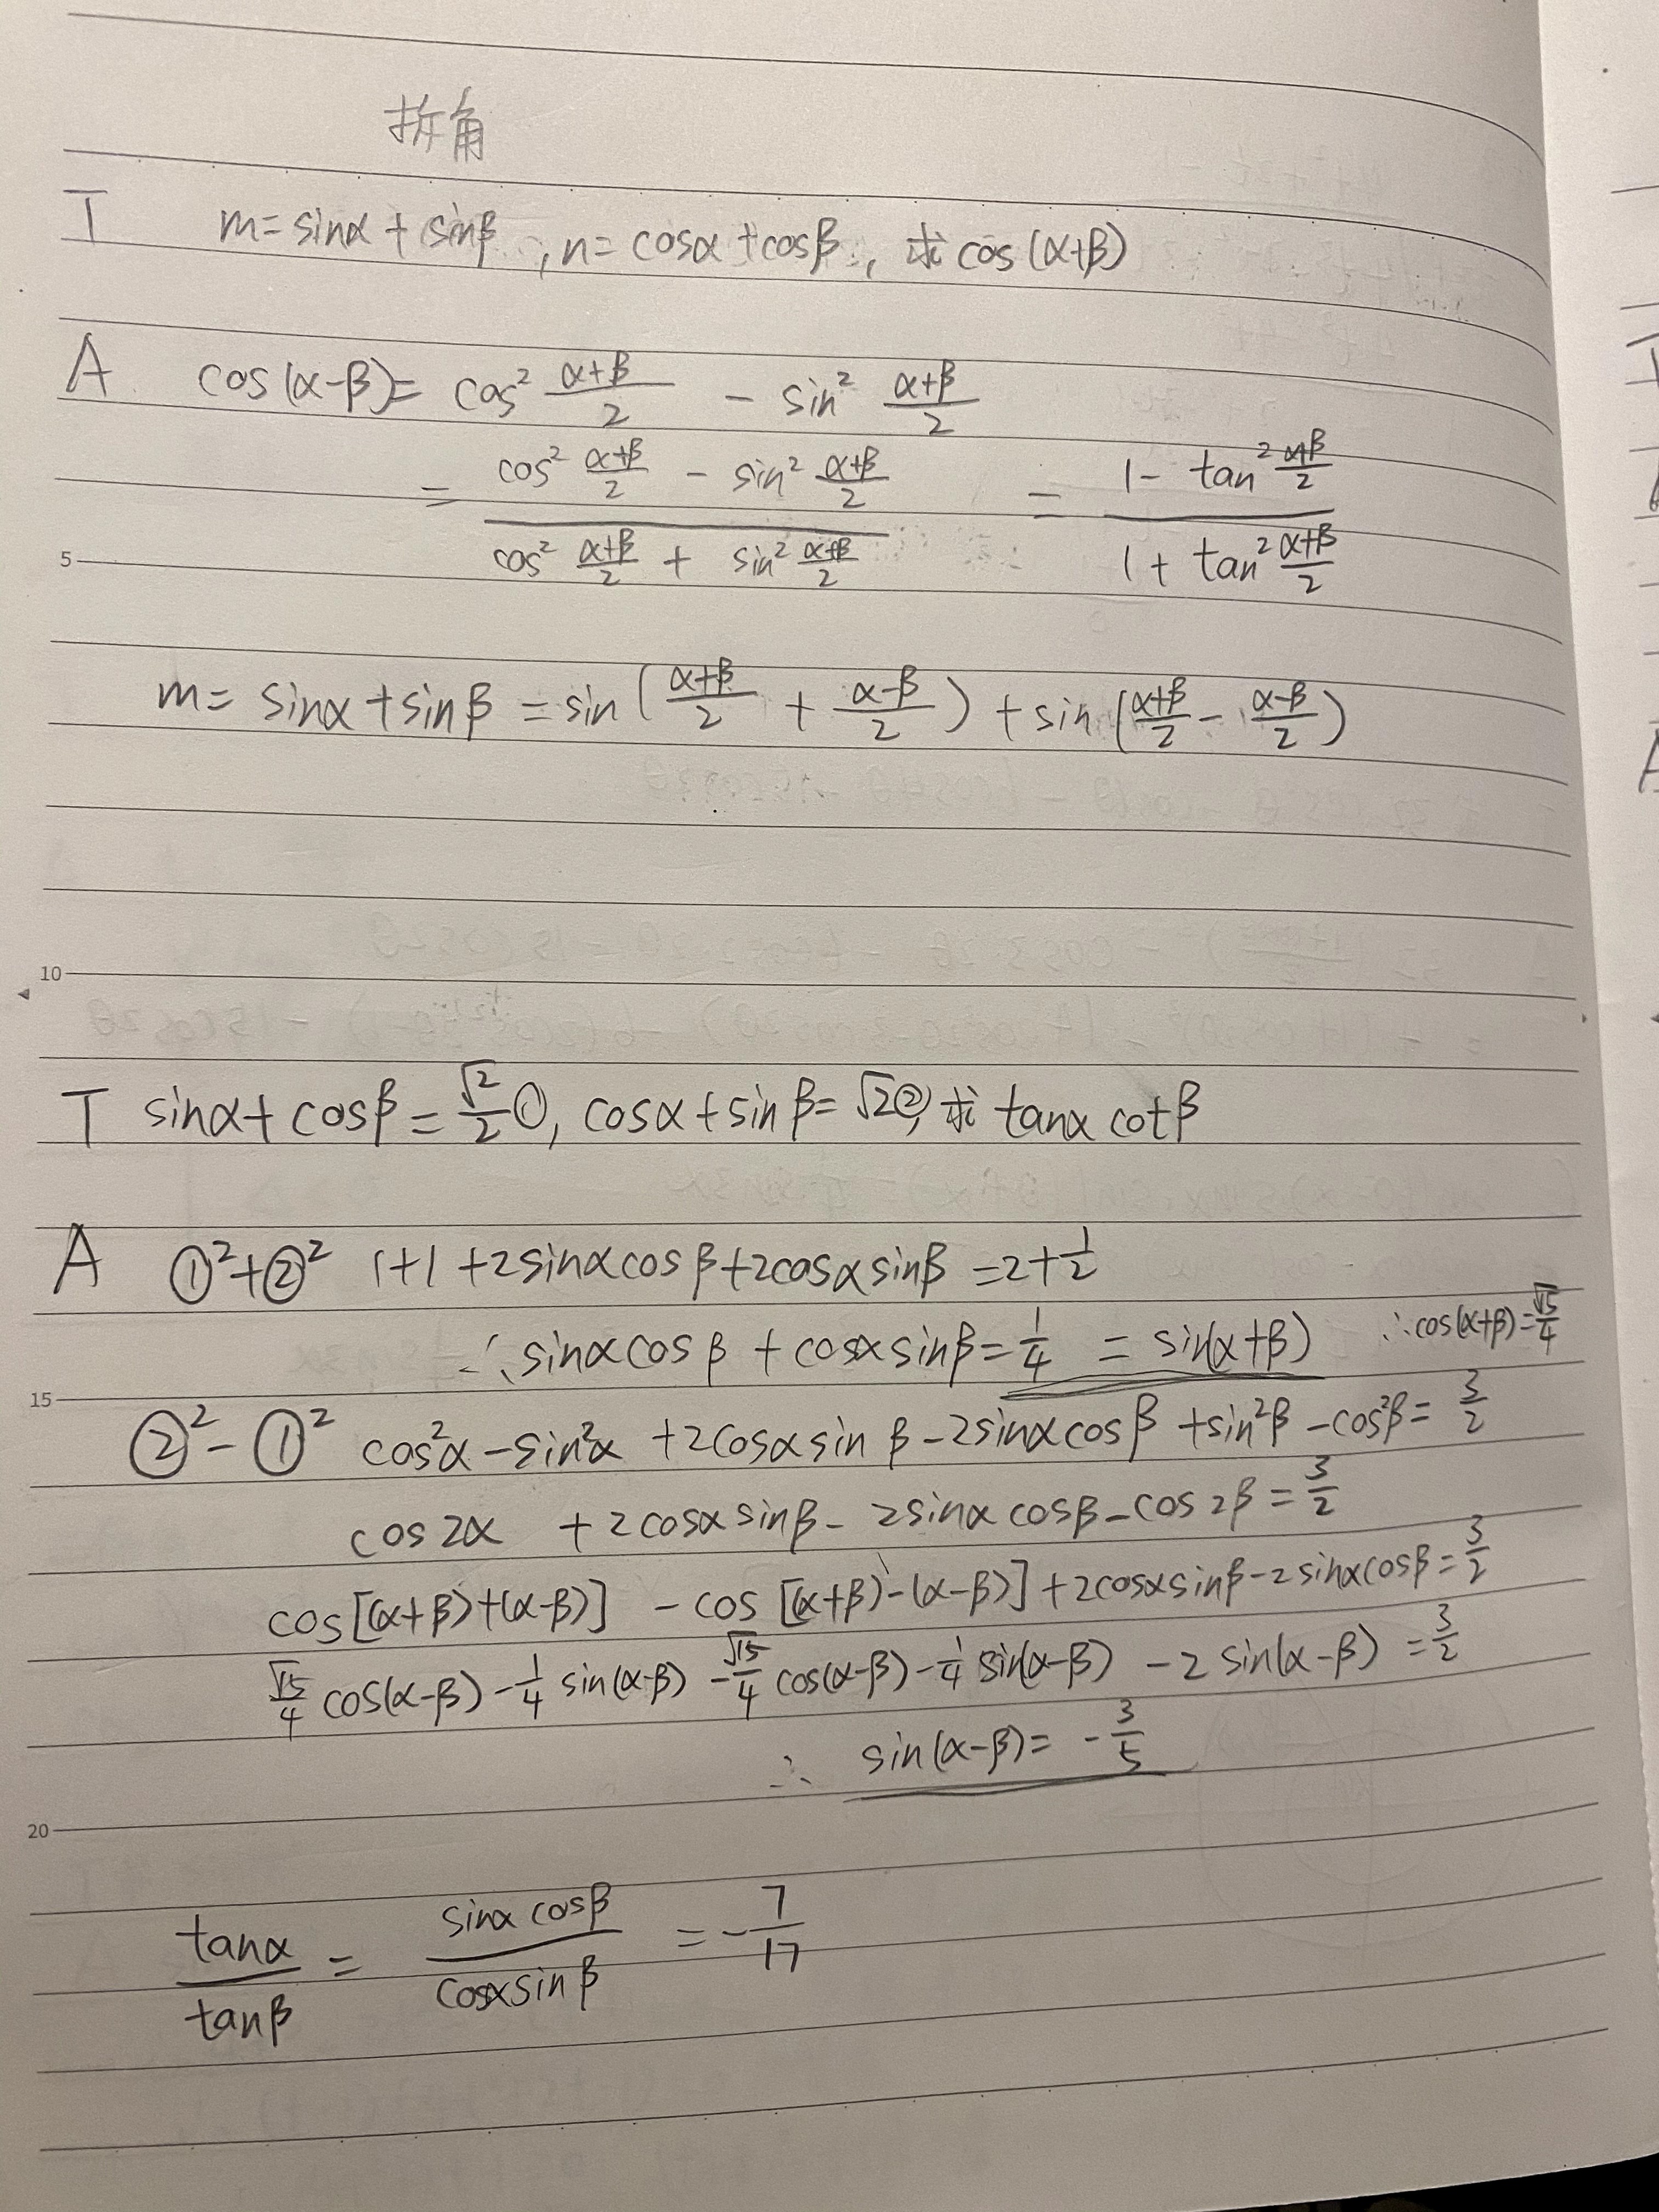 拼角
T m = sinα + sinβ, n = cosα + cosβ, 求 cos(α+β)
A cos(α-β) = cos² (α+β)/2 - sin² (α+β)/2
= (cos² (α+β)/2 - sin² (α+β)/2) / (cos² (α+β)/2 + sin² (α+β)/2) = (1 - tan² (α+β)/2) / (1 + tan² (α+β)/2)
5
m = sinα + sinβ = sin((α+β)/2 + (α-β)/2) + sin((α+β)/2 - (α-β)/2)
10
T sinα + cosβ = √2/2 ①, cosα + sinβ = √2 ② 求 tanα cotβ
A ①² + ②² 1+1+2sinαcosβ+2cosαsinβ = 2+1/2
∴ sinαcosβ + cosαsinβ = 1/4 = sin(α+β) ∴ cos(α+β) = √15/4
15
②² - ①² cos²α - sin²α + 2cosαsinβ - 2sinαcosβ + sin²β - cos²β = 3/2
cos2α + 2cosαsinβ - 2sinαcosβ - cos2β = 3/2
cos[(α+β)+(α-β)] - cos[(α+β)-(α-β)] + 2cosαsinβ - 2sinαcosβ = 3/2
√15/4 cos(α-β) - 1/4 sin(α-β) - √15/4 cos(α-β) - 1/4 sin(α-β) - 2sin(α-β) = 3/2
∴ sin(α-β) = - 3/5
20
tanα/tanβ = sinαcosβ/cosαsinβ = - 7/17